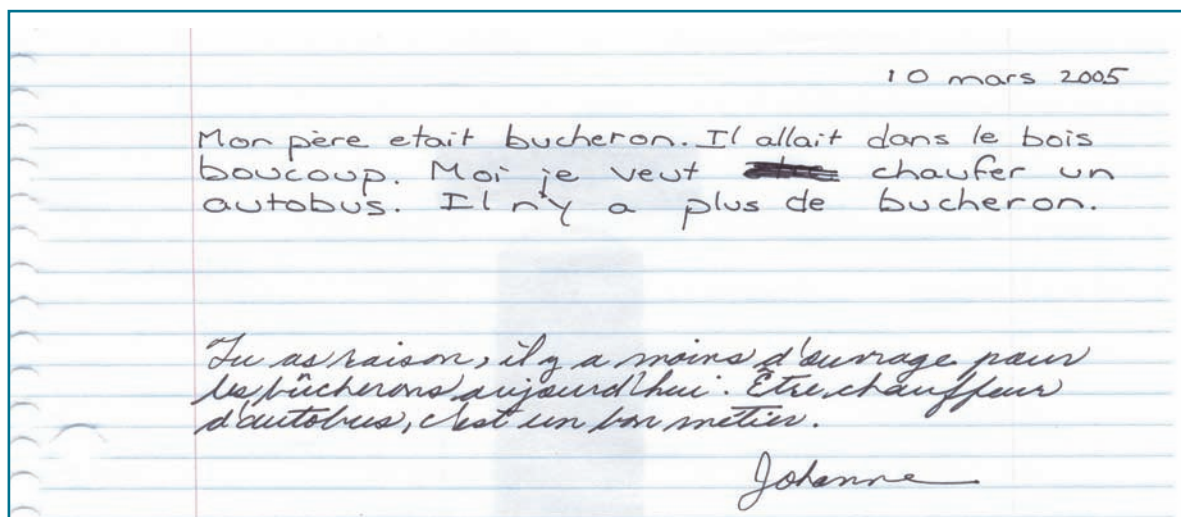 10 mars 2005
Mon père etait bucheron. Il allait dans le bois
boucoup. Moi je veut chaufer un
autobus. Il n'y a plus de bucheron.
Tu as raison, il y a moins d'ouvrage pour
les bûcherons aujourd'hui. Être chauffeur
d'autobus, c'est un bon métier.
Johanne